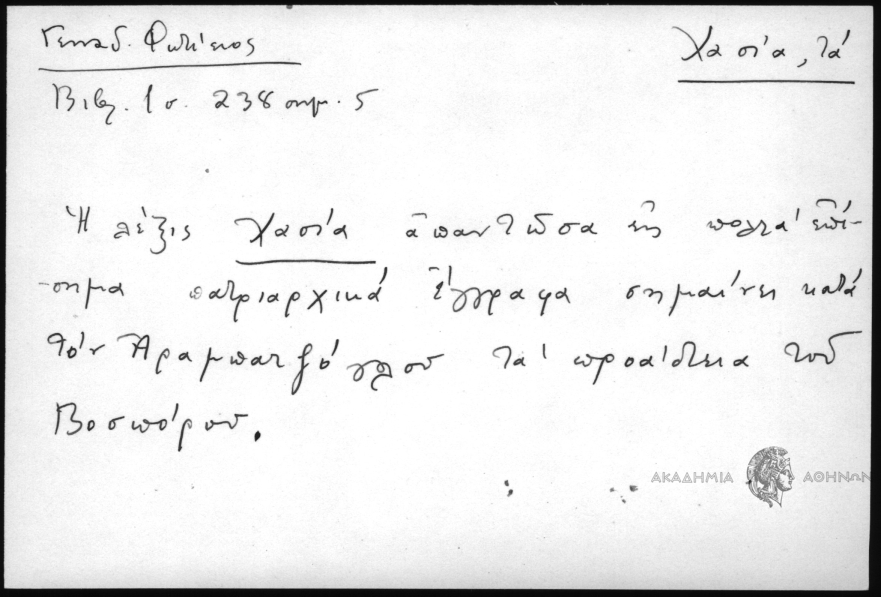 Γενναδ. Φωτίειος
Χασιά, τά
Βιβλ. 1 σ. 238 σημ. 5
Ἡ λέξις Χασιά ἀπαντῶσα εἰς πολλά ἐπί-
-σημα πατριαρχικά ἔγγραφα σημαίνει κατά
τόν Ἀραμπατζόγλου τά προάστεια τοῦ
Βοσπόρου.
ΑΚΑΔΗΜΙΑ ΑΘΗΝΩΝ